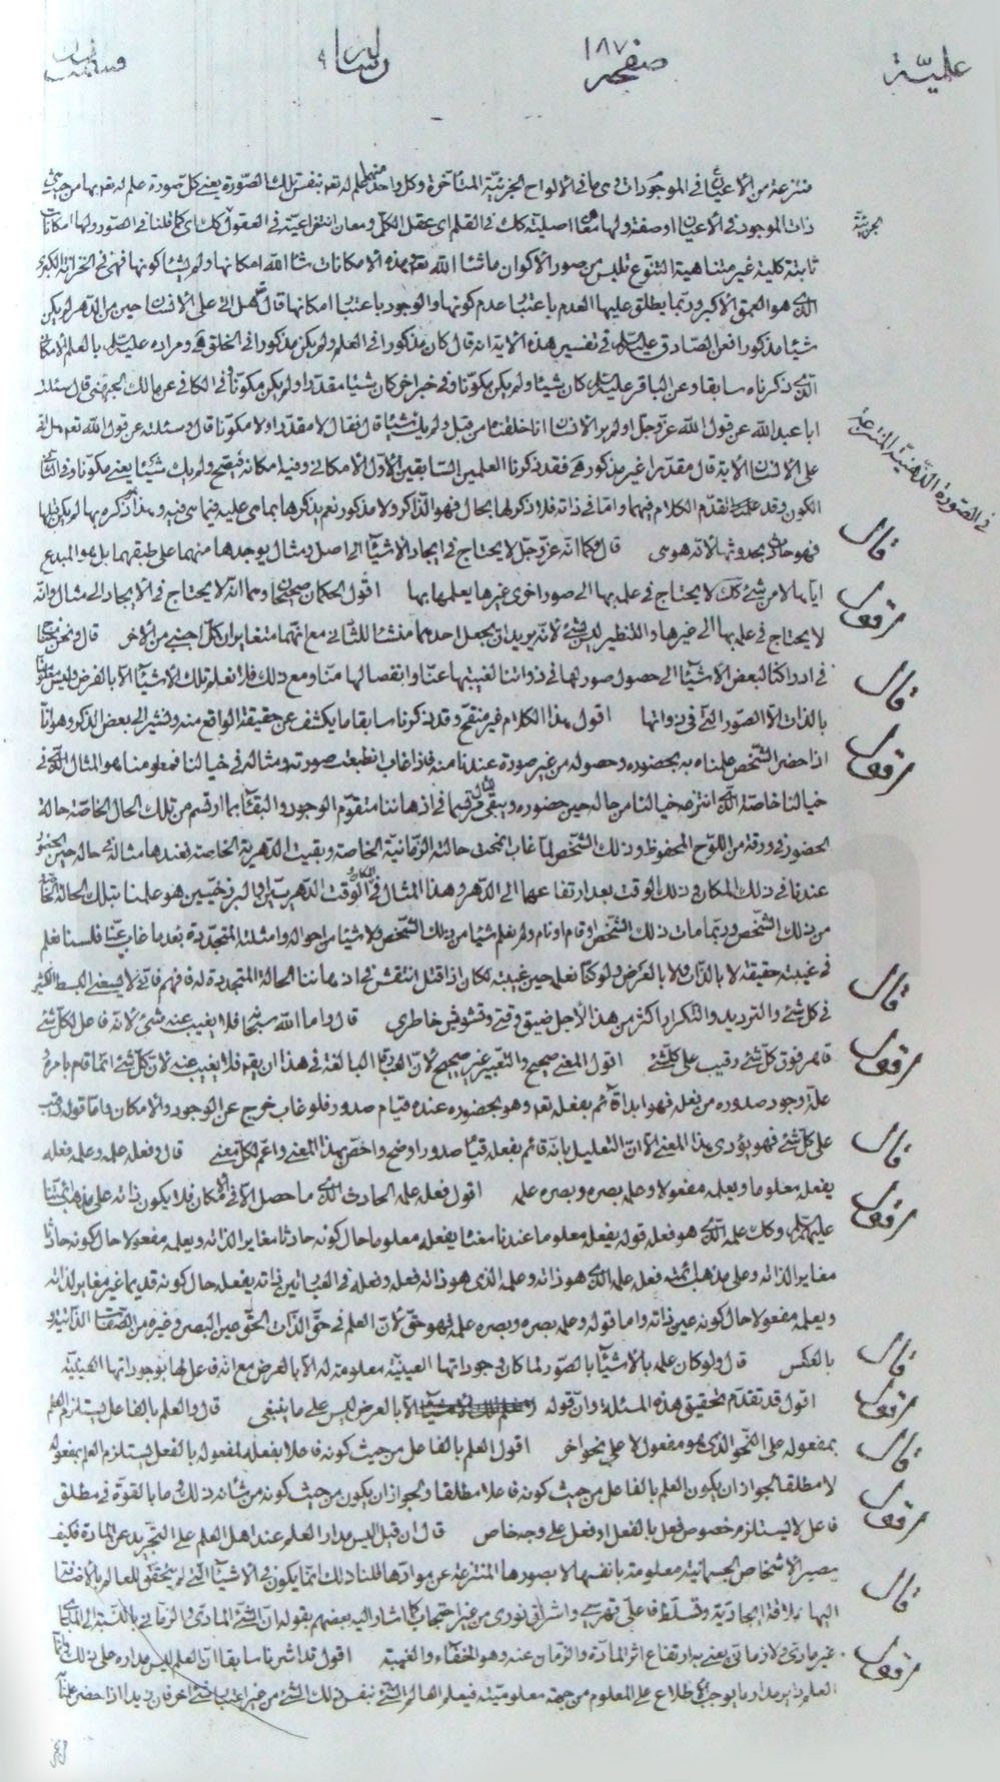 علميّة صفحه ١٨٧ رساله ٩
منتزعة من الأعيان في الموجودات في وما في الألواح الجزئيّة المتأخرة وكل واحد منها علم له تعم بنفس تلك الصّورة يعني كل صورة علم له تعم بها من حيث
الجزئيّة
ذات الموجود في الأعيان او صفة ولها معان اصليّة كلّية في القلم اى عقل الكلّ ومعان انتزاعيّة في العقول كك اى كما قلنا في الصّور ولها امكانات
ثابتة كلّية غير متناهية التنوّع تلبس من صور الأكوان ما شاء الله تعم هذه الامكانات شاء الله امكانها ولم يشأ كونها فهي في الخزانة الكبرى
الّتي هو العمق الأكبر وربّما يطلق عليها العدم باعتبار عدم كونها والوجود باعتبار امكانها قال تعم هل اتى على الانسان حين من الدّهر لم يكن
شيئا مذكورا فعن الصّادق عليه السّلام في تفسير هذه الآية انه قال كان مذكورا في العلم ولم يكن مذكورا في الخلق هـ ومراده عليه السّلام بالعلم الامكاني
الّذي ذكرناه سابقا وعن الباقر عليه السّلام كان شيئا ولم يكن مكوّنا وفي خبر اخر كان شيئا مقدّرا ولم يكن مكوّنا وفي الكافي عن مالك الجهني قال سئلت
ابا عبد الله عن قول الله عزّ وجلّ اولم ير الانسان انا خلقناه من قبل ولم يك شيئا قال فقال لا مقدّرا ولا مكوّنا قال وسئلته عن قول الله تعم هل اتى
في الصّورة الذّهنيّة المنتزعة
على الانسان الآية قال مقدّرا غير مذكور هـ فقد ذكرنا العلمين السّابقين الأوّل الامكاني وفيه امكانه فيصحّ ولم يك شيئا يعني مكوّنا وفي الثّاني
الكون وقد تقدّم الكلام فيهما وامّا في ذاته فلا ذكر لها بحال فهو الذّاكر ولا مذكور نعم يذكرها بما هي عليه فيما هي فيه وهذا ذكره بها لم يكن قبلها
قال
فهو حادث بحدوثها لأنّه هو هي قال فكما انّه عزّ وجلّ لا يحتاج في ايجاد الأشياء الى اصل ومثال يوجدها منهما على طبقهما بل هو المبدع
ايّاها لا من شئ كك لا يحتاج في علمه بها الى صور اخرى غيرها يعلمها بها اقول الحكمان صحيحان وهما انّه لا يحتاج في الايجاد الى مثال وانّه
اقول
لا يحتاج في علمه بها الى غيرها والتنظير ليس بشئ لأنّه يريد ان يجعل احدهما منشأ للثّاني مع انّهما متغايران كلّ اجنبيّ من الآخر قال ونحن نحتاج
قال
في ادراكنا لبعض الأشياء الى حصول صورتها في ذواتنا لغيبتها عنّا وانفصالها منّا ومع ذلك فلا نعلم تلك الأشياء الّا بالعرض وليس معلوما
بالذات الّا الصّور الّتي في ذواتها اقول هذا الكلام غير منقّح وقد ذكرنا سابقا ما يكشف عن حقيقة الواقع منه ونشير الى بعض الذكر وهو انّا
اقول
اذا حضر الشّخص علمناه به بحضوره وحصوله من غير صورة عندنا منه فاذا غاب انطبعت صورته ومثاله في خيالنا فمعلومنا هو المثال الّذي في
خيالنا خاصّة الّذي انتزعه خيالنا من حاله حين حضوره ويبقى مثاله قرّ فيما في اذهاننا متقوّم الوجود والبقاء بما ارتسم من تلك الحال الخاصّة حالة
الحضور في ورقة من اللّوح المحفوظ وذلك الشّخص لمّا غاب انمحت حالته الزّمانيّة الخاصّة وبقيت الدّهريّة الخاصّة فعندها مثاله في حالة حين الحضور
عندنا في ذلك المكان في ذلك الوقت بعد ارتفاعهما الى الدّهر وهذا المثال في المكان والوقت الدّهريّين او البرزخيّين هو علمنا بتلك الحالة الخاصّة
من ذلك الشّخص وربّما مات ذلك الشّخص او قام او نام ولم نعلم شيئا من ذلك الشّخص ولا شيئا من احواله وامثلته المتجدّدة بعد ما غاب عنّا فلسنا نعلم
في غيبته حقيقة لا بالذّات ولا بالعرض ولو كنّا نعلمه حين غيبته لكان اذا قتل انتقش في اذهاننا الحالة المتجدّدة له فافهم فانّي لا يسعني البسط الكثير
قال
في كل شئ والترديد والتكرار اكثر من هذا لأجل ضيق وقتي وتشويش خاطري قال وامّا الله سبحانه فلا يغيب عنه شئ لأنّه فاعل لكلّ شئ
قاهر فوق كلّ شئ رقيب على كلّ شئ اقول المعنى صحيح والتّعبير غير صحيح لأنّ العبارة البالغة في هذا ان يقم فلا يغيب عنه لانّ كلّ شئ انّما قام بامره
اقول
علّة وجود صدوره من فعله فهو ابدا قائم بفعله تعم وهو بحضوره عنده قيام صدور فلو غاب خرج عن الوجود والامكان وامّا قوله رقيب
على كلّ شئ فهو يؤدى هذا المعنى الّا انّ التعليل بانّه قائم بفعله قيام صدور اوضح واخصّ بهذا المعنى واعمّ لكلّ معنى قال وفعله علمه وعلمه فعله
قال
يفعل معلوما ويعلمه مفعولا وعلمه بصره وبصره علمه اقول فعله علمه الحادث الّذي ما حصل الّا في الامكان فلا يكون ذاته على مذهب ائمّتنا
اقول
عليهم السّلام وكك علمه الّذي هو فعله قوله يفعله معلوما عندنا معناه يفعله معلوما حال كونه حادثا مغاير الذاته ويعلمه مفعولا حال كونه حادثا
مغاير الذاته وعلى مذهب ائمّته فعله علمه الّذي هو ذاته وعلمه الذي هو ذاته فعله وفعله في العبارتين ذاته يفعله حال كونه قديما غير مغاير لذاته
ويعلمه مفعولا حال كونه عين ذاته واما قوله وعلمه بصره وبصره علمه فهو حقّ لأنّ العلم في حقّ الذّات الحقّ عين البصر وغيره من الصّفات الذّاتيّة و
بالعكس قال ولو كان علمه بالأشياء بالصّور لما كان وجوداتها العينيّة معلومة له الّا بالعرض مع انّه فاعل لها بوجوداتها العينيّة
قال
اقول قد تقدّم تحقيق هذه المسئلة وان قوله الّا بالعرض ليس على ما ينبغي قال والعلم بالفاعل يستلزم العلم
اقول
بمفعوله على النّحو الذي هو مفعول لا على نحو اخر اقول العلم بالفاعل من حيث كونه فاعلا بفعله لمفعوله بالفعل يستلزم العلم بمفعوله
قال
لا مطلقا لجواز ان يكون العلم بالفاعل من حيث كونه فاعلا مطلقا ولجواز ان يكون من حيث كونه من شانه ذلك وما بالقوّة في مطلق
اقول
فاعل لا يستلزم خصوص فعل بالفعل او فعل على وجه خاص قال ان قيل اليس مدار العلم عند اهل العلم على التّجريد عن المادة فكيف
يصير الأشخاص الجسمانيّة معلومة بانفسها لا بصورها المنتزعة عن موادّها قلنا ذلك انّما يكون في الأشياء الّتي لم يتحقّق للعالم بالاضافة
قال
اليها علاقة ايجاديّة وتسلّط فاعليّ قهريّ واشراق نوري من غير احتجاب كما اشار اليه بعضهم بقوله انّ الشّئ المادّي والزّماني بالنّسبة الى المبادى
غير مادّي ولا زماني يعني به ارتفاع اثر المادّة والزّمان عنه وهو الخفاء والغيبة اقول قد اشرنا سابقا انّ العلم ليس مداره على ذلك وانّما
اقول
العلم يدير مداره ما يوجب الاطلاع على المعلوم من جهة معلوميّته فيعلم العالم الشّئ بنفس ذلك الشّئ من غير اعتبار شئ اخر فان زيدا اذا حضر علمناه